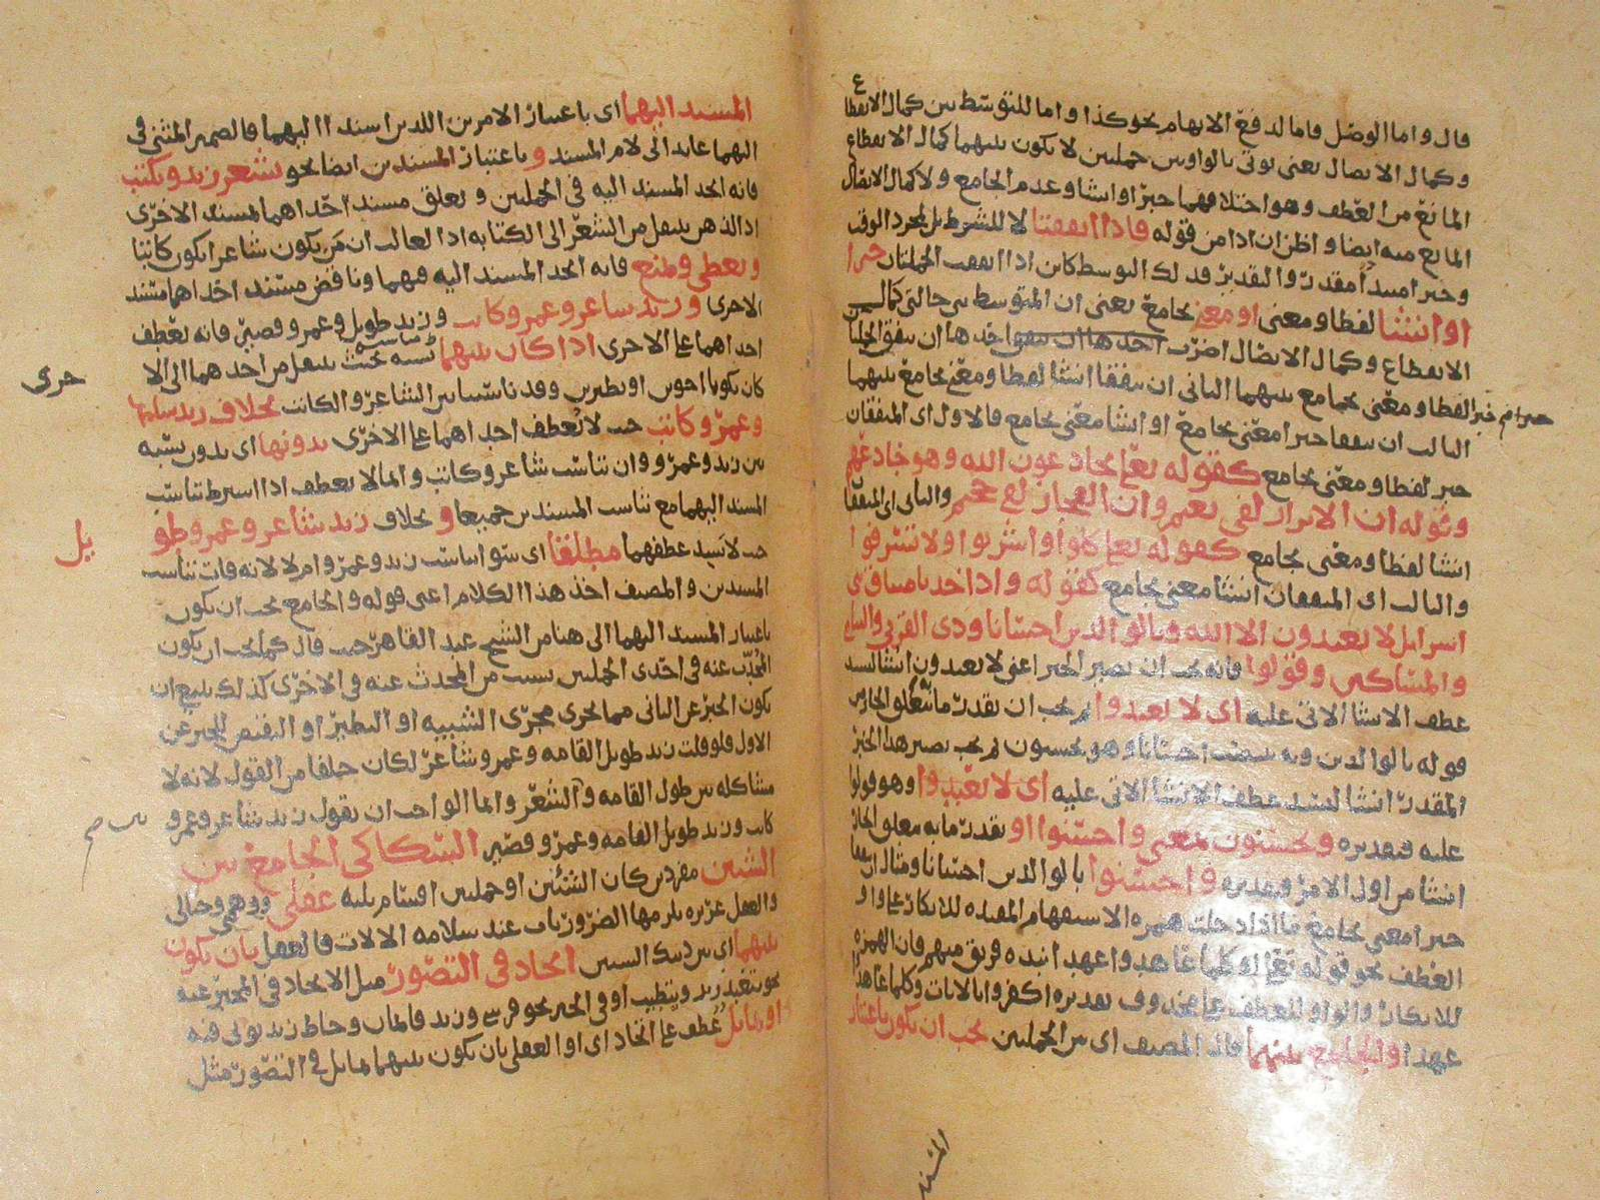 قال واما الوصل فاما لدفع الايهام نحو كذا واما للتوسط بين كمال الانقطاع
وكمال الاتصال يعنى يوتى بالواو بين جملتين لا يكون بينهما كمال الانقطاع
المانع من العطف وهو اختلافهما خبرا وانشا وعدم الجامع ولا كمال الاتصال
المانع منه ايضا واظن ان اذا من قوله فاذا اتفقتا لا للشرط بل لمجرد الوقت
وخبر امبتدا مقدر والتقدير فذلك التوسط كاين اذا اتفقت الجملتان خبرا
او انشا لفظا ومعنى او معنى بجامع يعنى ان المتوسط بين حالتى كمال
الانقطاع وكمال الاتصال اضرب احدها ان يتفقا احدها ان يتفق الجملتان
خبرا لفظا ومعنى بجامع بينهما الثانى ان يتفقا انشا لفظا ومعنى بجامع بينهما
الثالث ان يتفقا خبرا معنى بجامع او انشا معنى بجامع فالاول اى المتفقان
خبرا لفظا ومعنى بجامع كقوله تعالى يخادعون الله وهو خادعهم
وقوله ان الابرار لفى نعيم وان الفجار لفى جحيم والثانى اى المتفقا
انشا لفظا ومعنى بجامع كقوله تعالى كلوا واشربوا ولا تسرفوا
والثالث اى المتفقان انشا معنى بجامع كقوله واذ اخذنا ميثاق بنى
اسرايل لا تعبدون الا الله وبالوالدين احسانا وذى القربى واليتامى
والمساكين وقولوا فانه يجب ان يصير الخبر اعنى لا تعبدون انشا ليسد
عطف الانشا الاتى عليه اى لا تعبدوا ثم يجب ان يقدر ما يتعلق الجار من
قوله بالوالدين وبه ينصب احسانا وهو تحسنون ثم يجب تصيير هذا الخبر
المقدر انشا ليسد عطف الانشا الاتى عليه اى لا تعبدوا وهو قولوا
عليه فتقديره وتحسنون بمعنى واحسنوا او يقدر ما به يتعلق الجار
انشا من اول الامر وتقديره واحسنوا بالوالدين احسانا ومثال
خبرا معنى بجامع ما اذا دخلت همزه الاستفهام المفيده للانكار على واو
العطف نحو قوله تعالى اوكلما عاهدوا عهدا نبذه فريق منهم فان الهمزه
للانكار والواو للعطف على محذوف تقديره اكفروا بالايات وكلما عاهدوا
عهدا والجامع بينهما قال المصنف اى بين الجملتين يجب ان يكون باعتبار
المسند
المسند اليهما اى باعتبار الامرين اللذين اسند اليهما فالضمير المثنى فى
اليهما عايد الى لام المسند وباعتبار المسندين ايضا نحو يشعر زيد ويكتب
فانه اتحد المسند اليه فى الجملتين وتعلق مسند احداهما لمسند الاخرى
اذ الذهن ينتقل من الشعر الى الكتابه اذ الغالب ان من يكون شاعرا يكون كاتبا
ويعطى ويمنع فانه اتحد المسند اليه فيهما وتناقض مسند احداهما مسند
الاخرى وزيد شاعر وعمرو كاتب وزيد طويل وعمرو قصير فانه تعطف
احداهما على الاخرى اذا كان بينهما مناسبه بحيث ينتقل من احدهما الى الا
خرى
كان يكونا اخوين او نظيرين وقد تناسبا بين الشاعر والكاتب بخلاف زيد شاعر
وعمرو كاتب حيث لا تعطف احداهما على الاخرى بدونها اى بدون نسبه
بين زيد وعمرو وان تناسب شاعر وكاتب وانما لا يعطف اذا اشترط تناسب
المسند اليهما مع تناسب المسندين جميعا و بخلاف زيد شاعر وعمرو طو
يل
حيث لا يسد عطفهما مطلقا اى سوا تناسب زيد وعمرو ام لا لانه فات تناسب
المسندين والمصنف اخذ هذا الكلام اعنى قوله والجامع يجب ان يكون
باعتبار المسند اليهما الى هنا من الشيخ عبد القاهر حيث قال كما يجب ان يكون
المحدث عنه فى احدى الجملتين بسبب من المحدث عنه فى الاخرى كذلك ينبغى ان
يكون الخبر عن الثانى مما يجرى مجرى الشبيه او النظير او النقيض للخبر عن
الاول فلو قلت زيد طويل القامه وعمرو شاعر لكان خلفا من القول لانه لا
مشاكله بين طول القامه والشعر وانما الواجب ان يقول زيد شاعر وعمرو
كاتب وزيد طويل القامه وعمرو قصير السكاكى الجامع بين
الشيئين مفردين كان الشيئين او جملتين اقسام ثلثه عقلى ووهمى وخيالى
والعقل غريزه يلزمها الضروريات عند سلامه الالات فالعقلى بان يكون
بينهما اى بين ذينك الشيئين اتحاد فى التصور مثل الاتحاد فى المخبر عنه
نحو يتعبد زيد ويتطبب او فى الخبر نحو فرسى وزيد فالمان وخاط زيد ثوبى فيه
او تماثل عطف على اتحاد اى او العقلى بان يكون بينهما تماثل فى التصور مثل